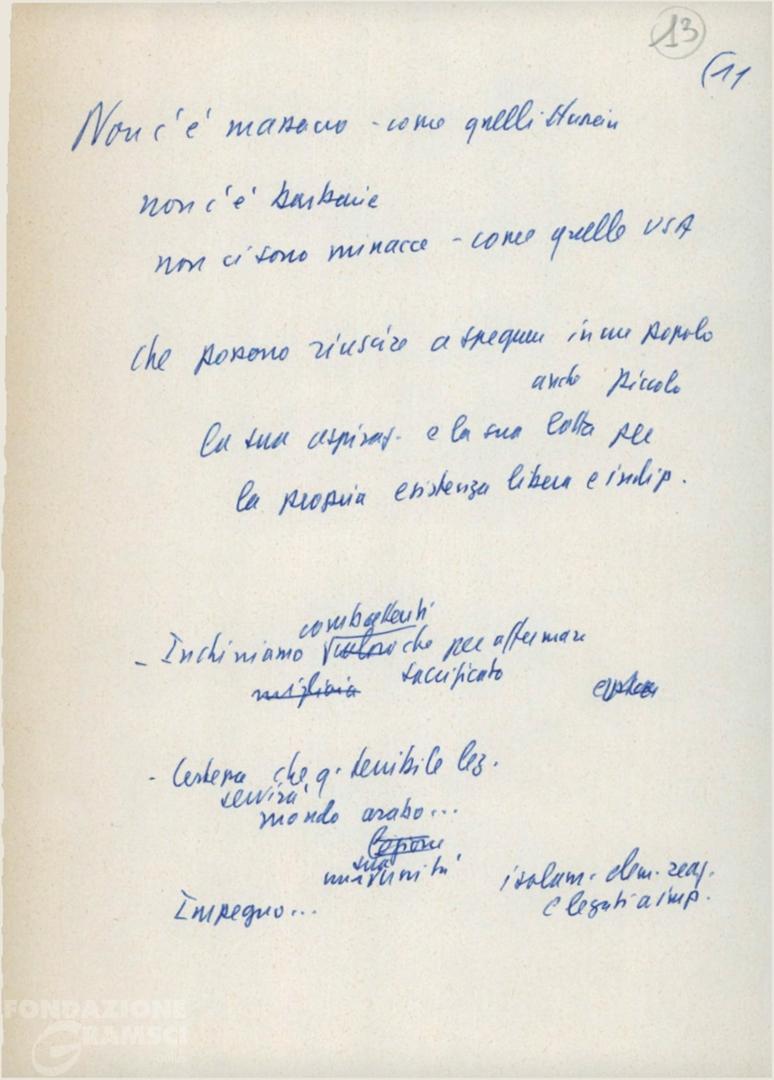 13
(11
Non c'è massacro - come quelli Hussein
non c'è barbarie
non ci sono minacce - come quelle USA
che possono riuscire a spegnere in un popolo
anche piccolo
la sua aspiraz. e la sua lotta per
la propria esistenza libera e indip.
combattenti
- Inchiniamo che per affermare
migliaia sacrificato
- Certezza che q. terribile lez.
servirà
mondo arabo...
Lezione
sua unità
isolam. elem. reaz.
e legati a imp.
Impegno...
FONDAZIONE
GRAMSCI